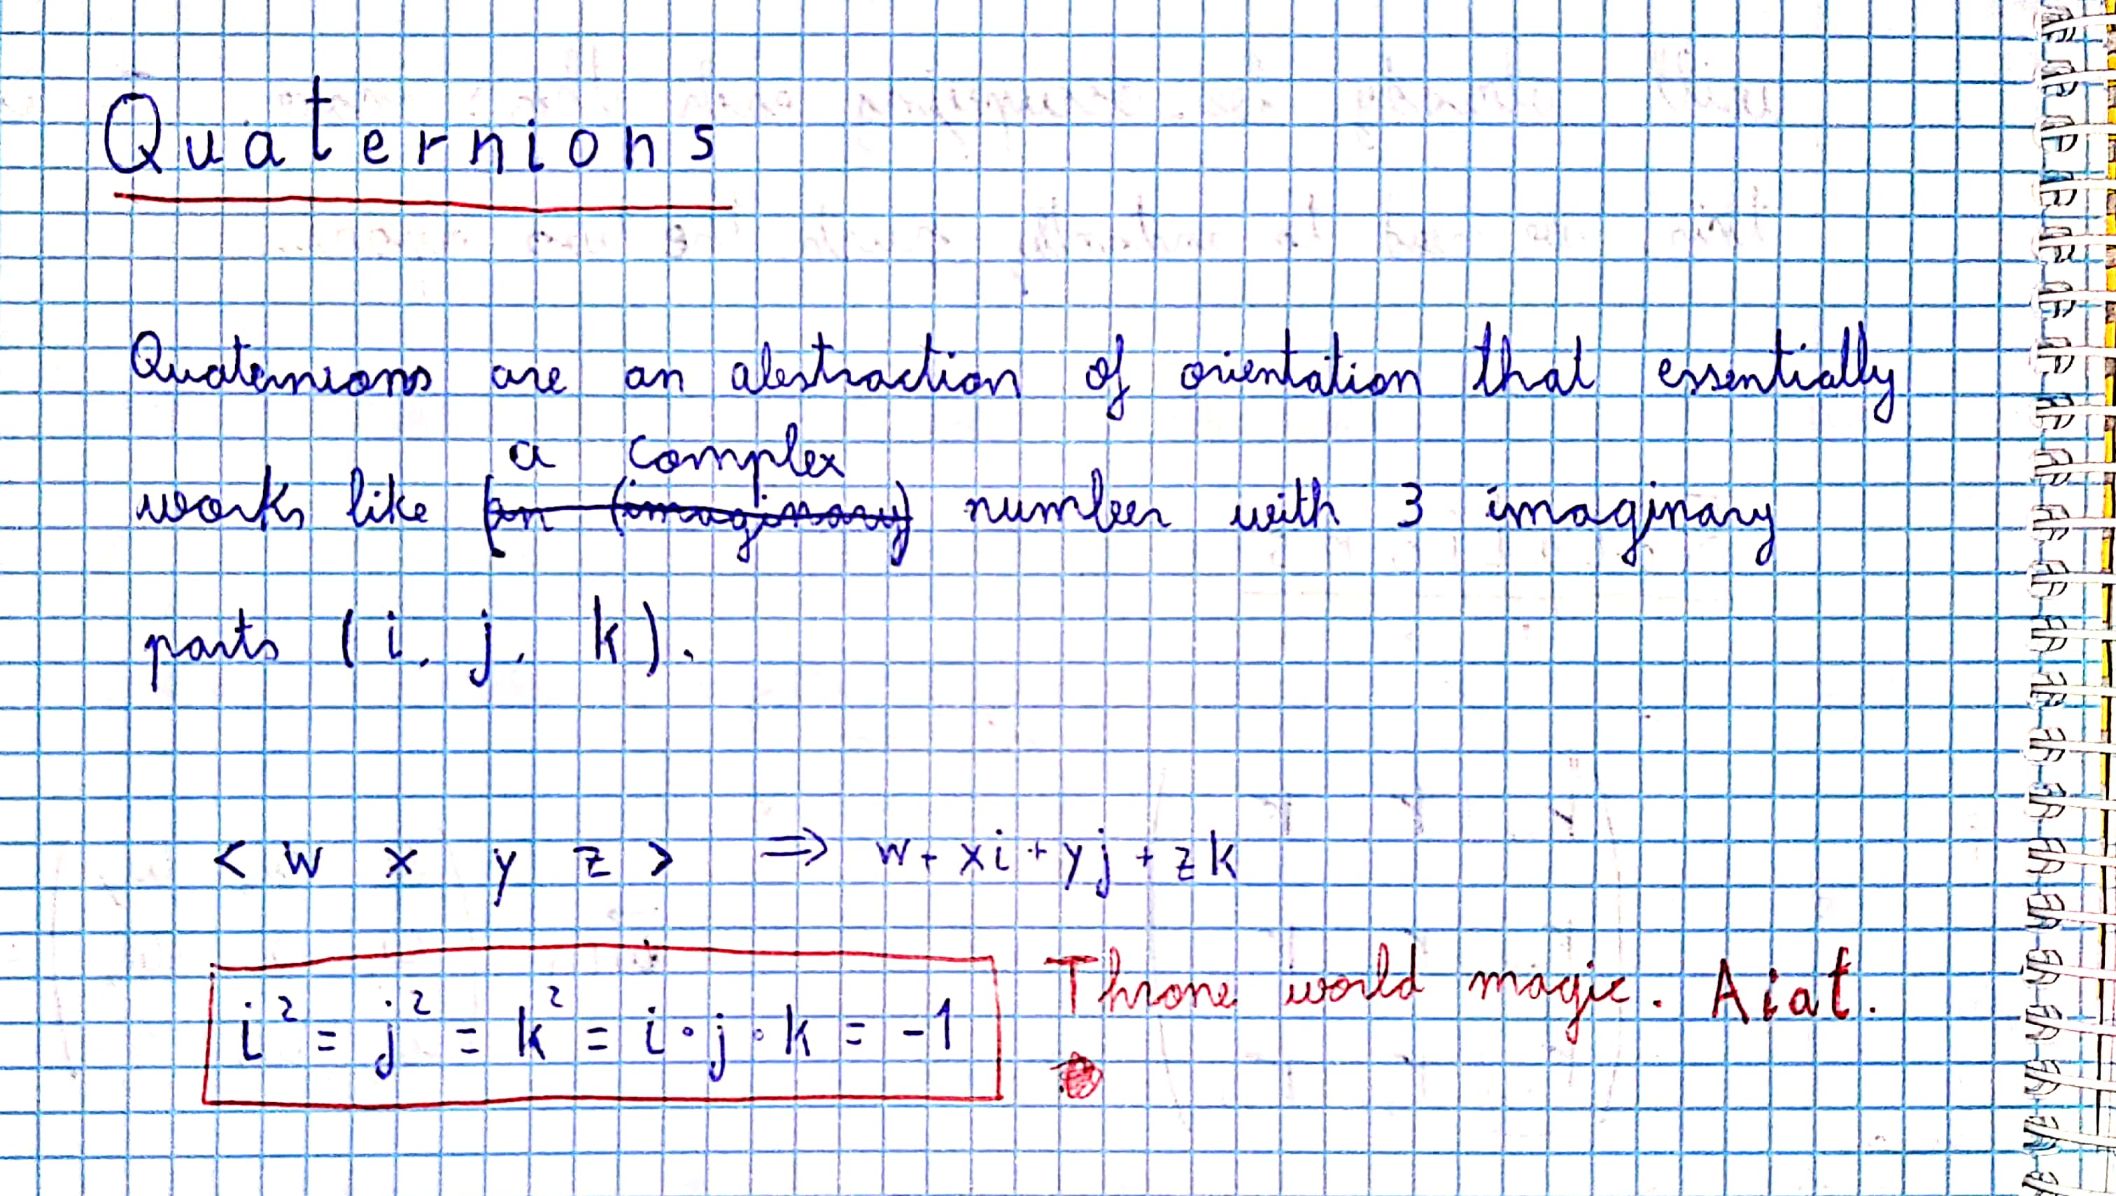 Quaternions
Quaternions are an abstraction of orientation that essentially
a complex
works like (an (imaginary) number with 3 imaginary
parts (i, j, k).
< w x y z > ⇒ w + xi + yj + zk
i² = j² = k² = i·j·k = -1
Throne world magic. Aiat.